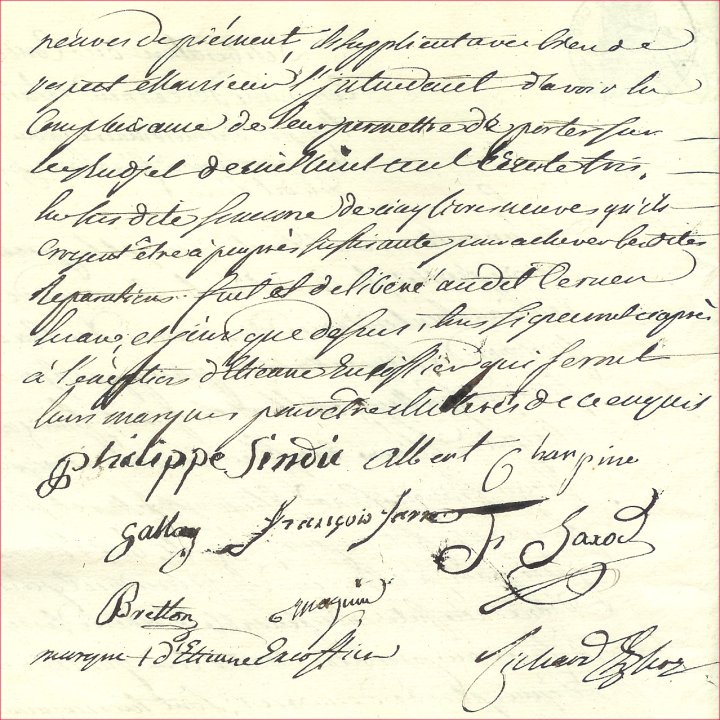 neuves de piémont, Ils supplient avec bien de
respect Monsieur l'jntendent d'avoir la
Complaisance de leur permettre de porter sur
le Budjet de mil huit cent trente trois,
la sus dite somme de cinq livres neuves qu'ils
croyent être à peuprès suffisante pour achever lesdites
Reparations. fait et deliberé audit Cernex
lu an, et jour que dessus, tous signeront ci après
à l'éxéption d'Etienne Excoffier qui feront
leurs marques pour être illiterés de ce enquis
philippe Sindic albert Charpine
Gallay françois
Bretton Magnin
marque + d'Etienne Excoffier Richard